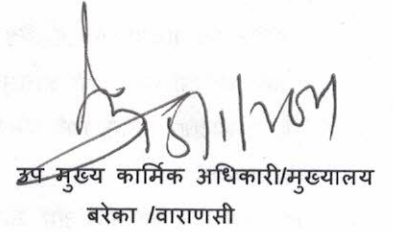 उप मुख्य कार्मिक अधिकारी/मुख्यालय
बरेका /वाराणसी